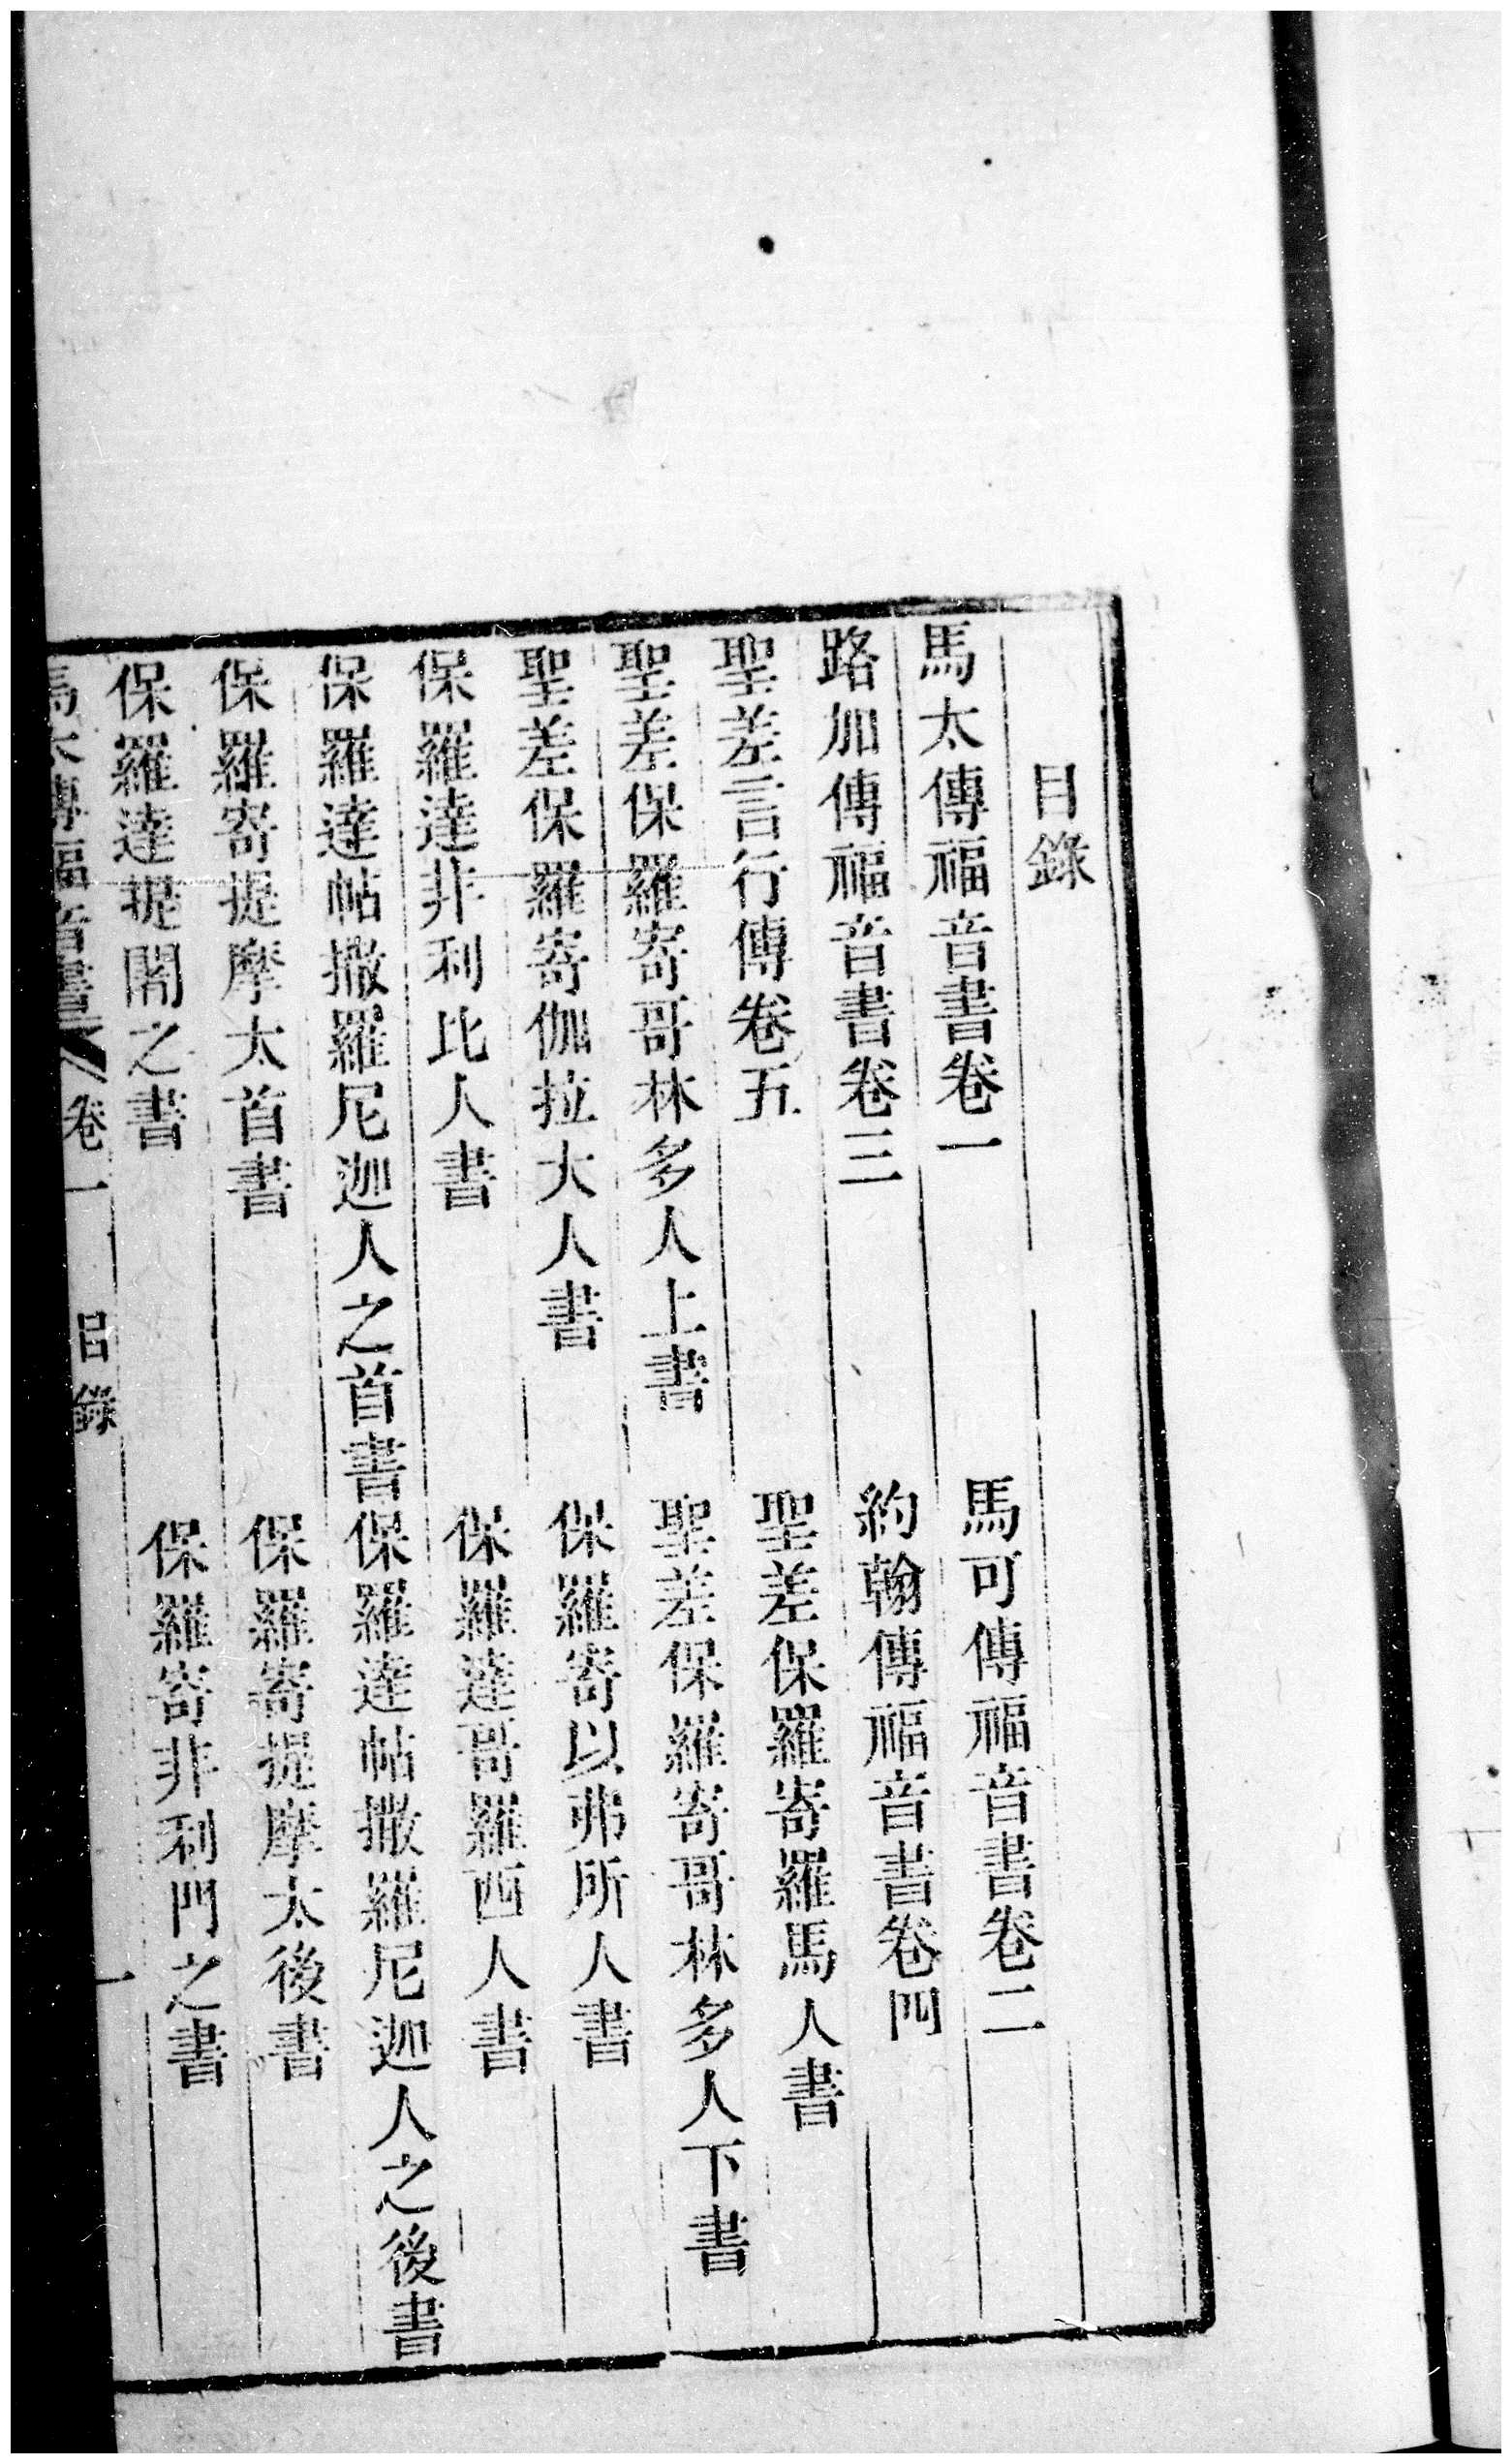 目錄
馬太傳福音書卷一
馬可傳福音書卷二
路加傳福音書卷三
約翰傳福音書卷四
聖差言行傳卷五
聖差保羅寄羅馬人書
聖差保羅寄哥林多人上書
聖差保羅寄哥林多人下書
聖差保羅寄伽拉太人書
保羅寄以弗所人書
保羅達非利比人書
保羅達哥羅西人書
保羅達帖撒羅尼迦人之首書
保羅達帖撒羅尼迦人之後書
保羅寄提摩太首書
保羅寄提摩太後書
保羅達提閣之書
保羅寄非利門之書
馬太傳福音書 卷一 目錄 一